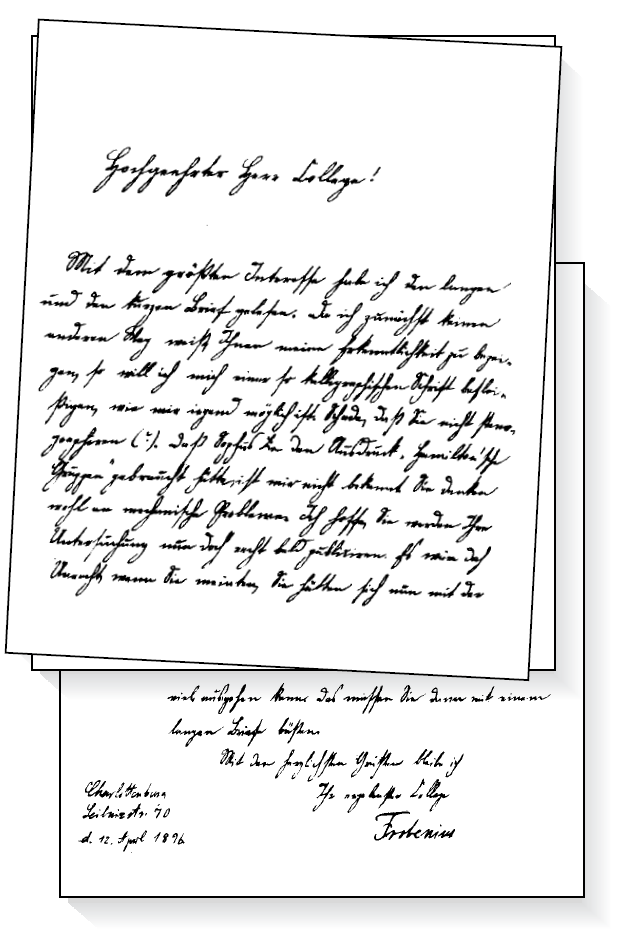 Hochgeehrter Herr College!
Mit dem größten Interesse habe ich den langen
und den kurzen Brief gelesen. Da ich zunächst keinen
anderen Weg weiß, Ihnen meine Erkenntlichkeit zu bezei-
gen, so will ich mich einer so kalligraphischen Schrift beflei-
ßigen, wie mir irgend möglich ist. Schade, daß Sie nicht steno-
graphieren (?). Daß Sophus Lie den Ausdruck „Hamilton'sche
Gruppen" gebraucht hätte, ist mir nicht bekannt. Sie denken
wohl an mechanische Probleme. Ich hoffe, Sie werden Ihre
Untersuchung nun doch recht bald publiciren. Es wäre doch
Unrecht, wenn Sie meinten, Sie hätten sich nun mit der
viel ausgehen kann. Das müssen Sie dann mit einem
langen Briefe büßen.
Mit den herzlichsten Grüßen bleibe ich
Ihr ergebenster College
Frobenius
Charlottenburg
Leibnizstr. 70
d. 12. April 1896